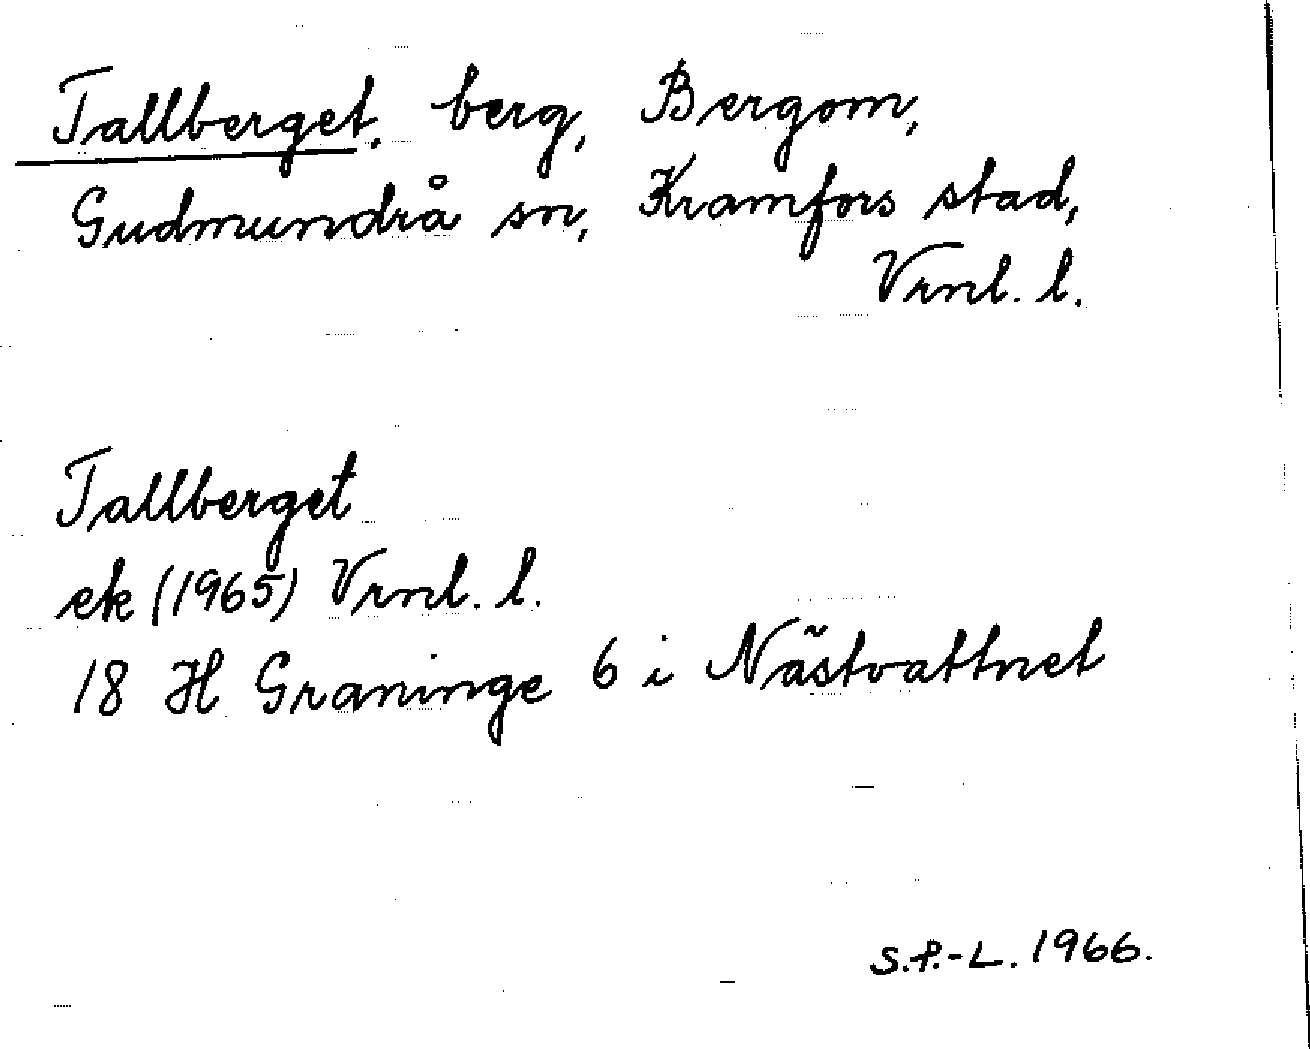 Tallberget, berg, Bergom,
Gudmundrå sn, Kramfors stad,
Vrnl. l.
Tallberget
ek (1965) Vrnl. l.
18 H Graninge 6 i Nästvattnet
S.P.-L. 1966.